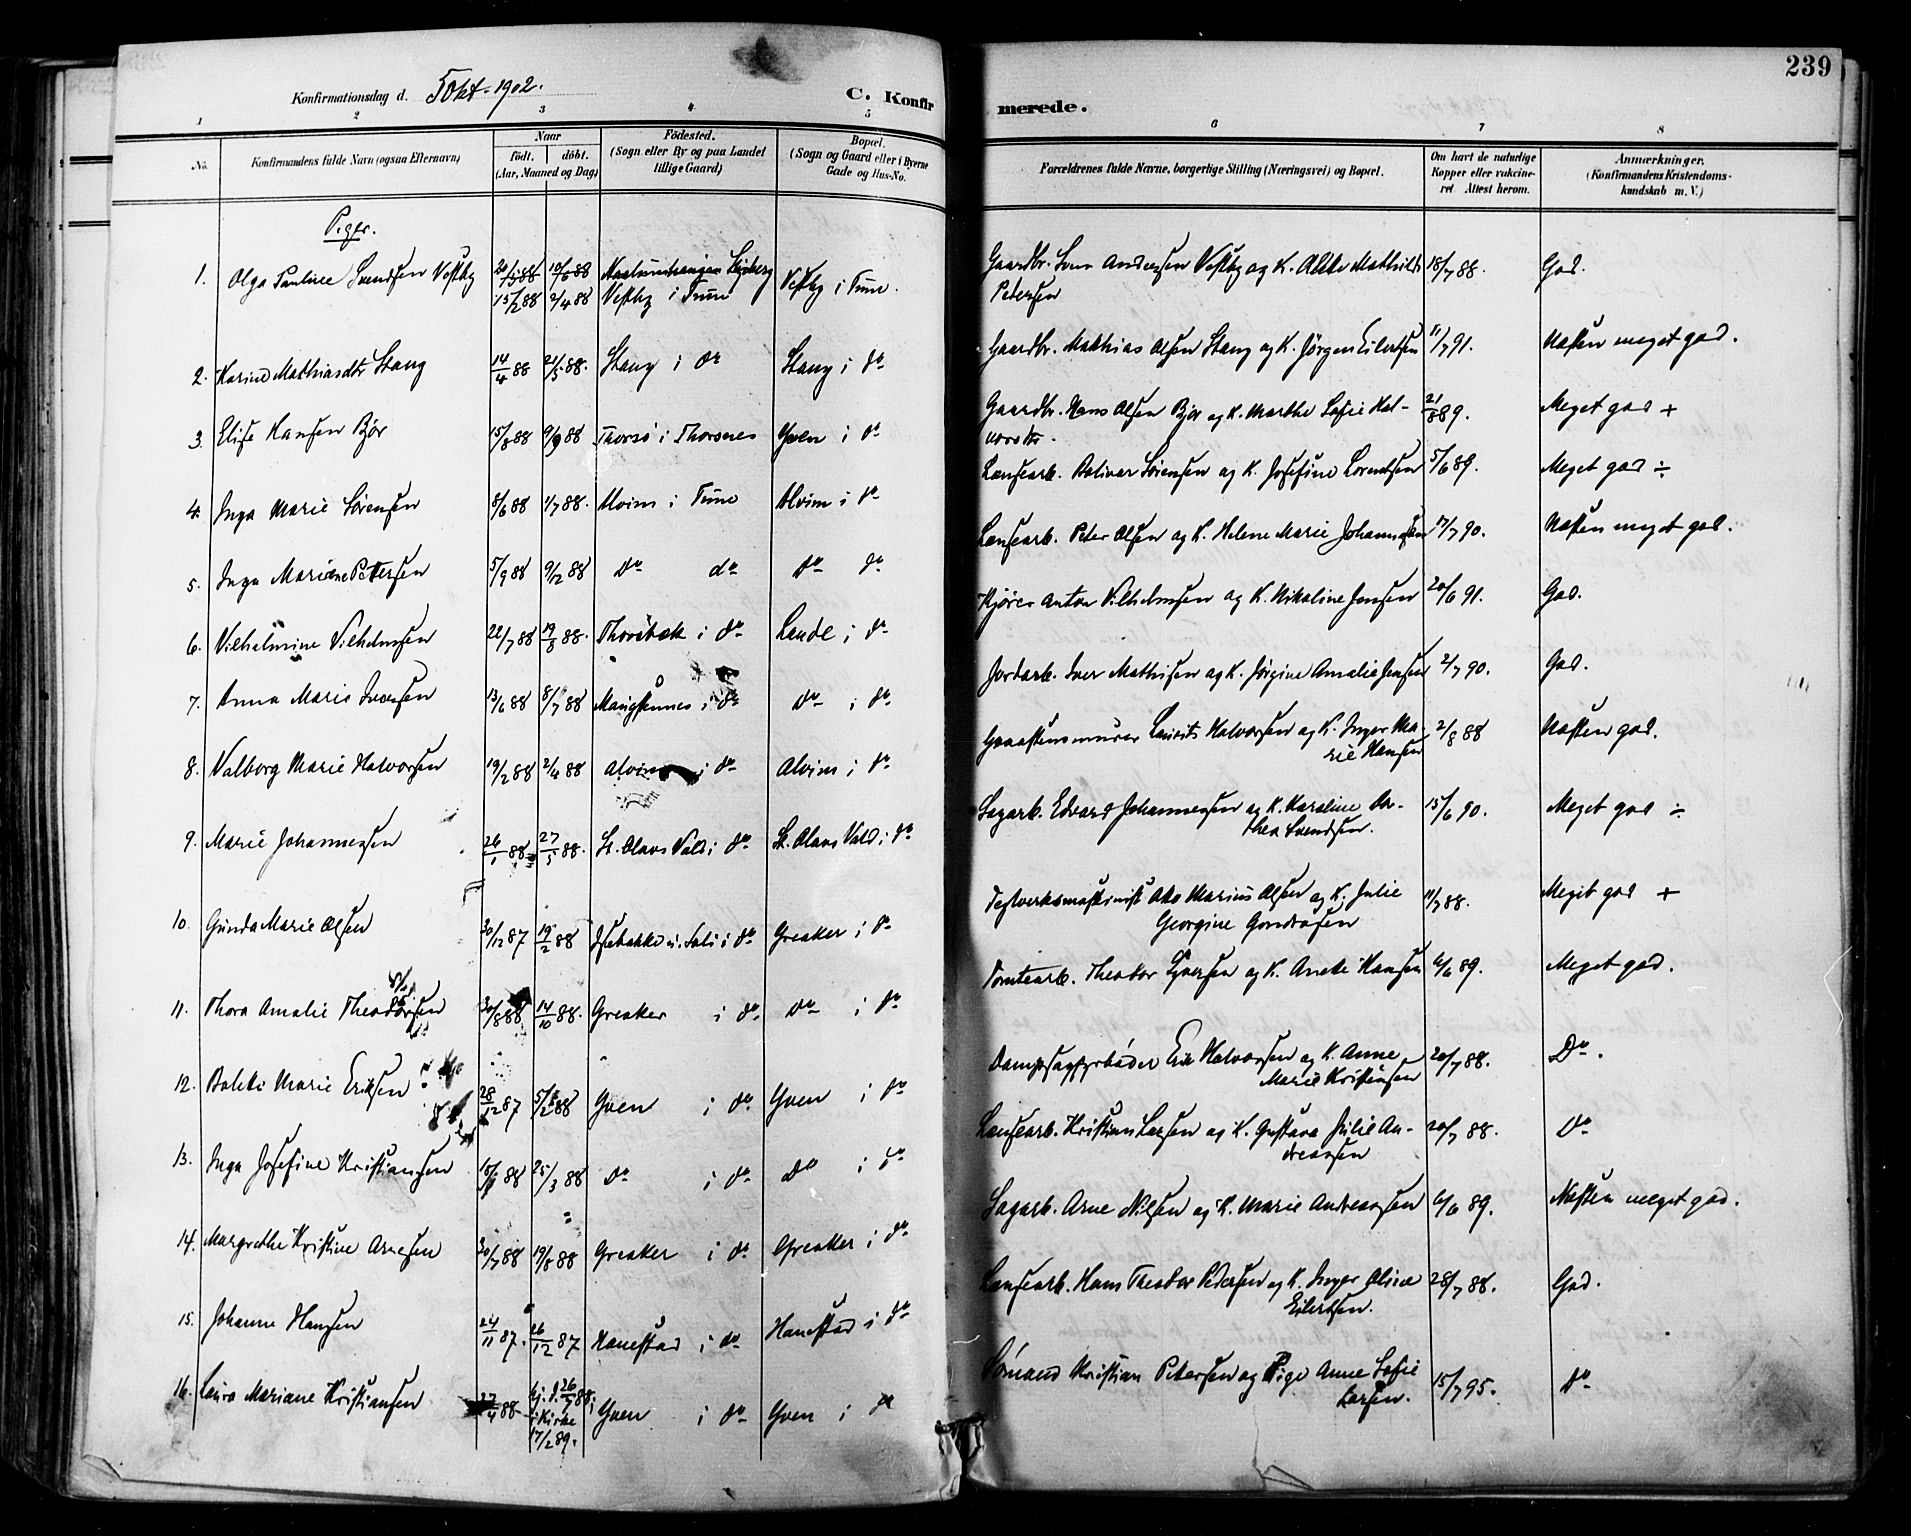 239
Konfirmationsdag d. 5 Okt. 1902.
C. Konfirmerede.
1 2 3 4 5 6 7 8
No.
Konfirmandens fulde Navn (ogsaa Efternavn)
Naar
født. døbt.
(Aar, Maaned og Dag)
Fødested.
(Sogn eller By og paa Landet
tillige Gaard)
Bopæl.
(Sogn og Gaard eller i Byerne
Gade og Hus-No.
Forældrenes fulde Navne, borgerlige Stilling (Næringsvei) og Bopæl.
Om havt de naturlige
Kopper eller vakcine-
ret Attest herom.
Anmærkninger.
(Konfirmandens Kristendoms-
kundskab m. V.)
Piger.
1. Olga Pauline Svendsen Vestby 15/2 88 2/4 88 Vestby i Tune Vestby i Tune. Gaardbr. Sven Andersen Vestby og K. Mathilde 18/7 88. God.
Petersen
2. Karine Mathiasdtr Stang 14/4 88 21/5 88. Stang i do Stang i do Gaardbr. Mathias Olsen Stang og K. Jörgen Eilertsen 11/7 91. Næsten meget god.
3. Elise Hansen Bjør 15/8 88 9/9 88 Thorsø i Thorsnes Yven i do Gaardbr. Hans Olsen Bjør og K. Marthe Sofie Hal- 21/8 89. Meget god +
vorsdtr.
4. Inga Marie Sørensen 8/6 88 1/7 88. Alvim i Tune Alvim i do Lensearb. Bolivar Sørensen og K. Josefine Lorentsen 5/6 89. Meget god ÷
5. Inga Mariane Pettersen 5/9 88 9/12 88 do do do do Lensearb. Peter Olsen og K. Helene Marie Johannesen 17/7 90. Næsten meget god.
6. Vilhelmine Vilhelmsen 22/7 88 19/8 88. Thorsbæk i do Lande i do Kjører Anton Vilhelmsen og K. Nikoline Jensen 20/6 91. God.
7. Anna Marie Iversen 13/6 88 8/7 88 i do do i do Jordarb. Iver Mathisen og K. Jørgine Amalie Jensen 2/7 90. God.
8. Valborg Marie Halvorsen 19/2 88 2/4 88 Alvim i do Alvim i do Graastensmurer Laurits Halvorsen og K. Inger Ma- 2/8 88 Næsten god.
rie Hansen
9. Marie Johannessen 26/1 88 27/5 88. St. Olavs Vold i do St. Olavs Vold i do Sagarb. Edvard Johannessen og K. Karoline Do- 15/6 90. Meget god ÷
thea Svendsen.
10. Gunda Marie Olsen 30/12 87 19/2 88 i do Greaker i do Teglverksmaskinist Marius Olsen og K. Julie 11/7 88. Meget god +
Georgine
11. Thora Amalie Theodorsen 30/8 88 14/10 88. Greaker i do. do i do Tomtearb. Theodor Syversen og K. Anette Hansen 6/6 89. Meget god.
12. Bolette Marie Eriksen 28/12 87 5/2 88 Yven i do Yven i do Dampsagfyrbøder Erik Halvorsen og K. Anne 20/7 88. Do.
Marie Kristensen
13. Inga Josefine Kristiansen 25/3 88 do i do do i do Lensearb. Kristian Larsen og K. Gustava Julie An- 20/7 88. do
dreassen
14. Margrethe Kristine Arnesen 30/7 88 19/8 88 Greaker i do Greaker i do Sagarb. Arne Nilsen og K. Marie Andreassen 6/6 89. Næsten meget god.
15. Johanne Hansen 24/11 87. 26/12 87 Hanestad i do Hanestad i do Lensearb. Hans Theodor Pedersen og K. Inger Oline 28/7 88. God.
Eilertsen.
16. Laura Mariane Kristiansen 27/4 88 hj. d. 26/7 88, Yven i do Yven i do Sømand Kristian Petersen og Pige Anne Sofie 15/7 95. do
i Kirke Larsen.
17/2 89.